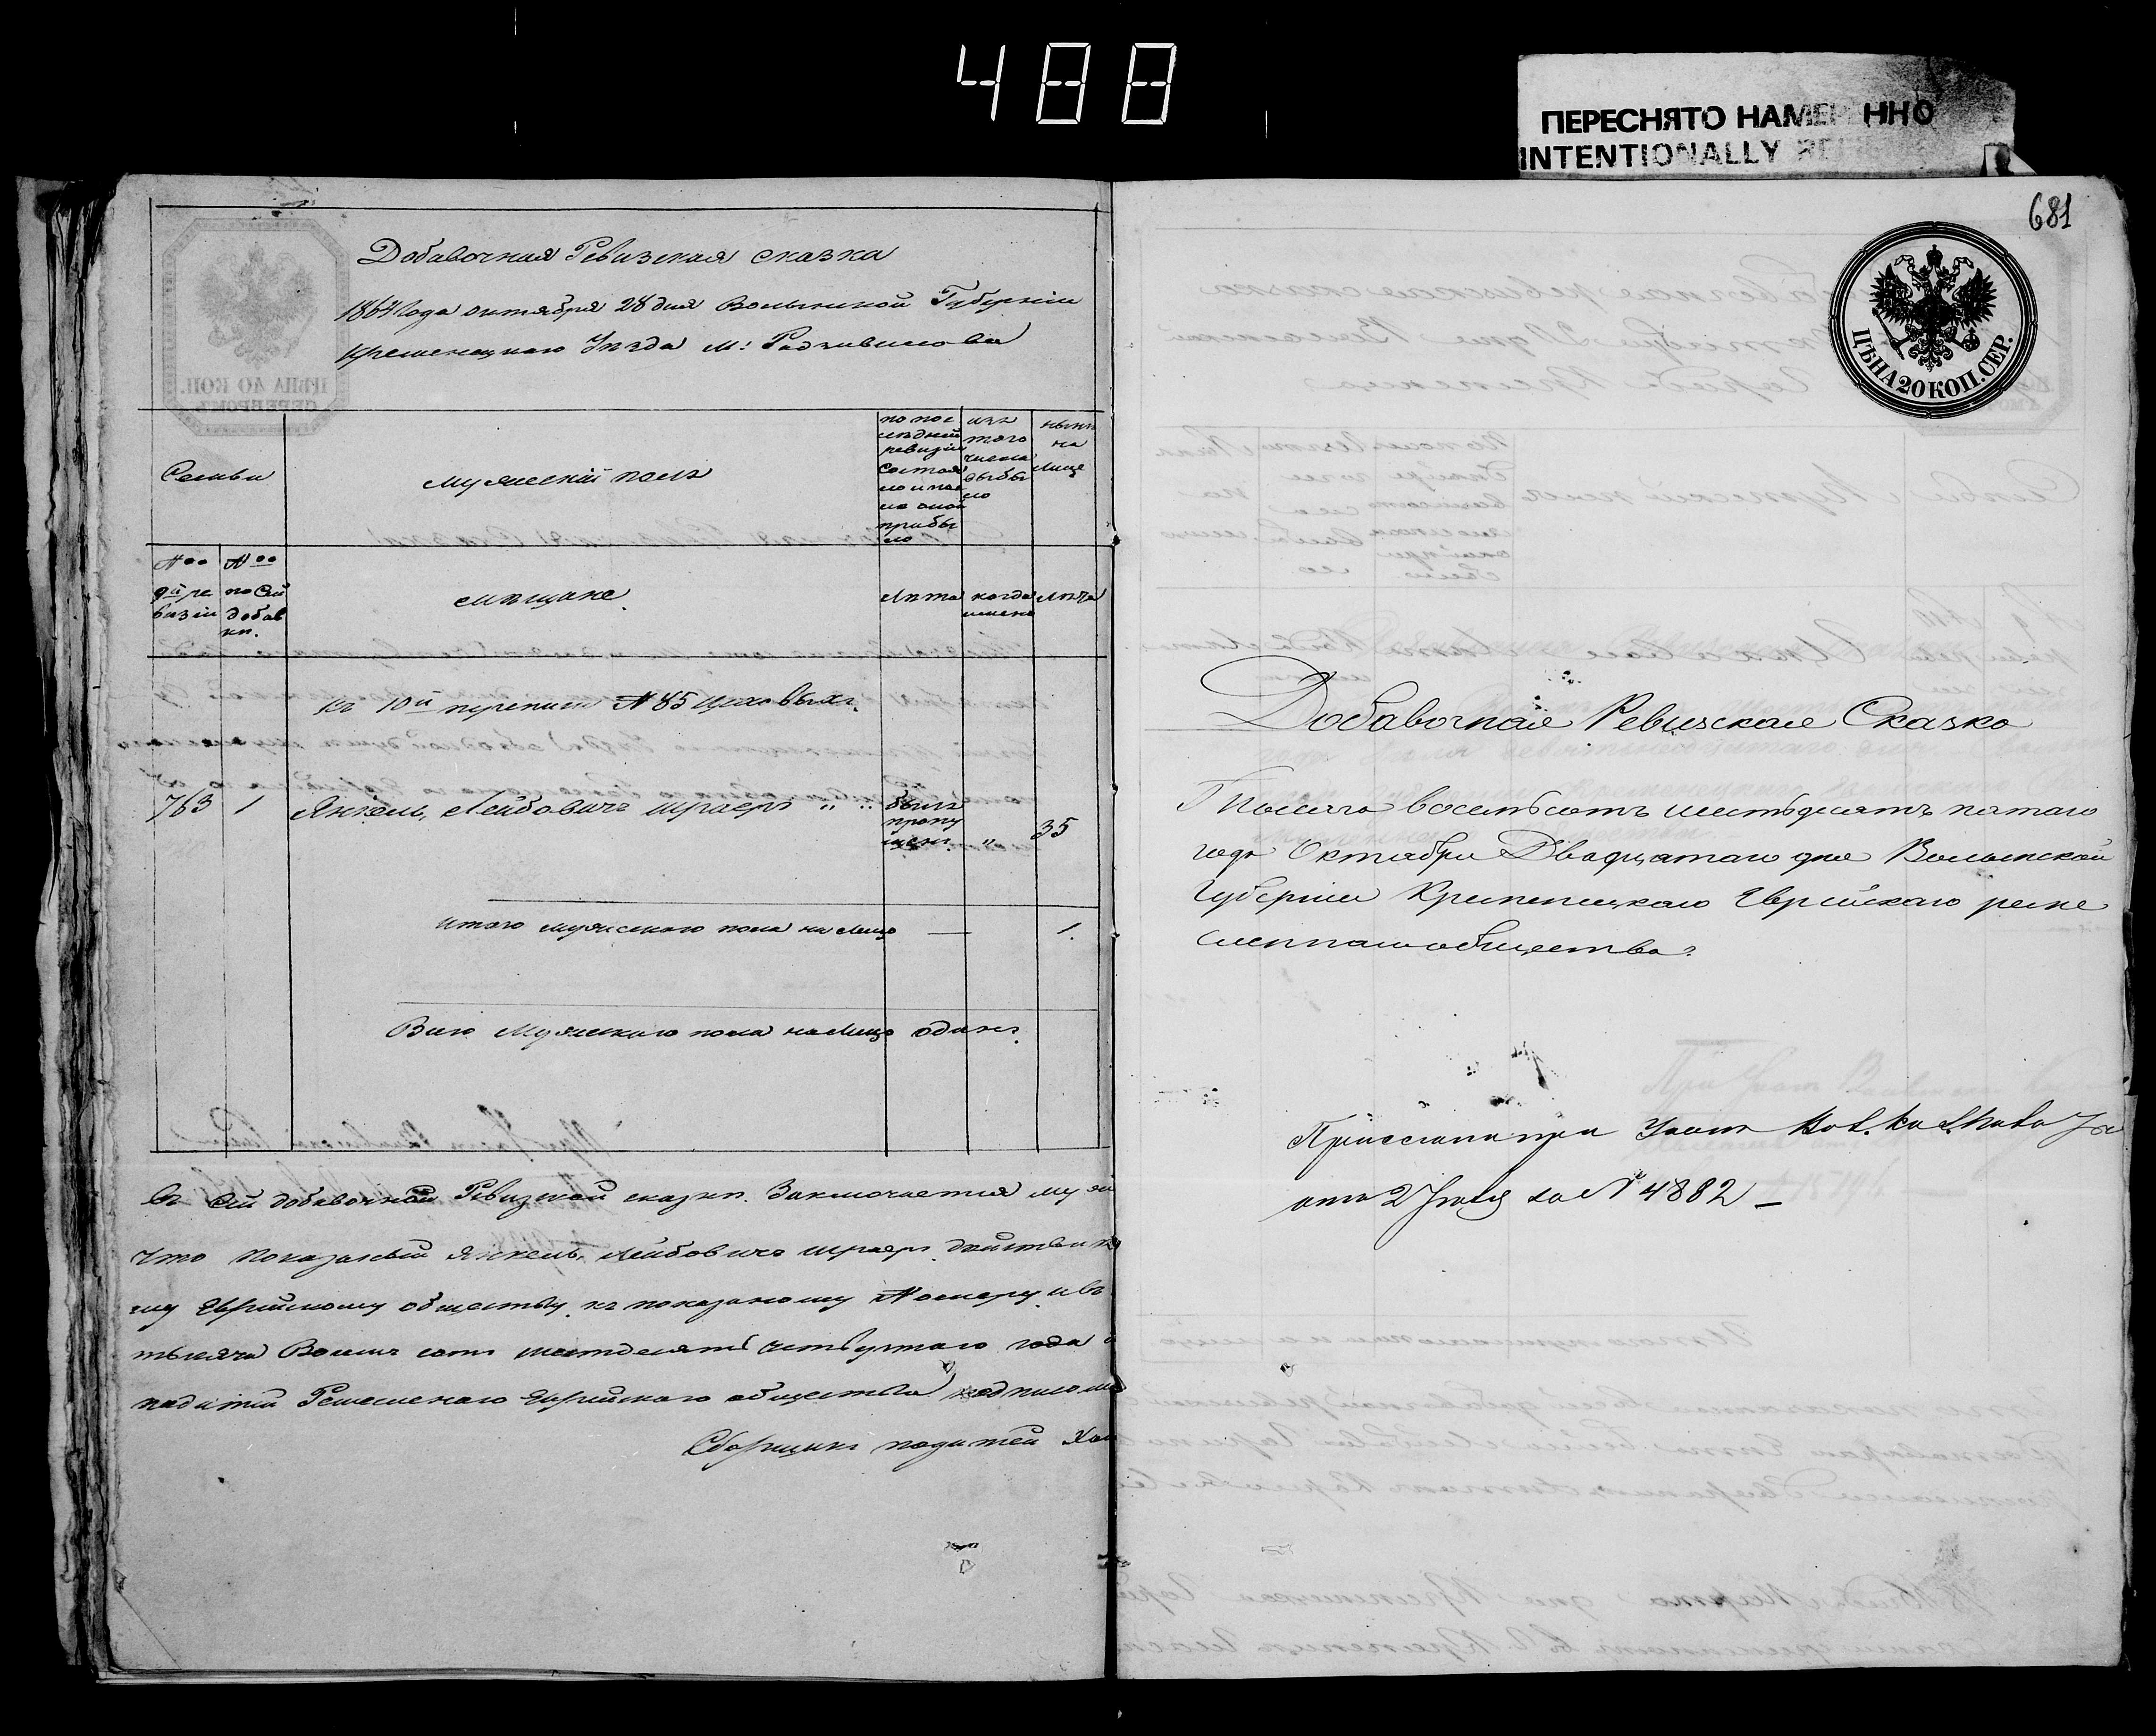 488
ПЕРЕСНЯТО НАМЕР ННО
INTENTIONALLY RE
Добавочная Ревизская сказка
1864 года октября 28 дня Волынской Губерніи
Кременецкаго Уезда м: Радзивилова
Семьи
мужескій полъ
по пос
лѣдней
ревизіи
состоя
ло и пос
ле оной
прибы
ло
изъ
того
числа
выбы
ло
нынѣ
на
лице
№№
9й ре
визіи
№№
по сей
добав
кѣ.
мѣщане
лѣта
когда
именно
лѣта
къ 10й переписи № 85 цеховыхъ.
763 1 Янкель Лейбовичъ шраеръ " "
былъ
пропу
щенъ
"
35
итого мужескаго пола на лицо — 1.
Всего Мужескаго пола на Лицо одинъ.
Въ Сей добавочной Ревизской сказкѣ. Заключается муж
Что показаный Янкель Лейбовичъ шраеръ действит
му Еврейскому обществу къ показаному Номеру и въ
тысяча Восемъ сотъ шестдесятъ четвертаго года
податей Ремесленаго Еврейскаго общества подписомъ
Сборщикъ податей Хаи
681
ЦѢНА 20 КОП. СЕР.
Добавочная Ревизская Сказка
Тысяча восемьсотъ шестьдесятъ пятаго
года Октября Двадцатаго дня Волынской
Губерніи Кременецкаго Еврейскаго реме
сленнаго общества.
при Указѣ
отъ 2 за № 4882 –